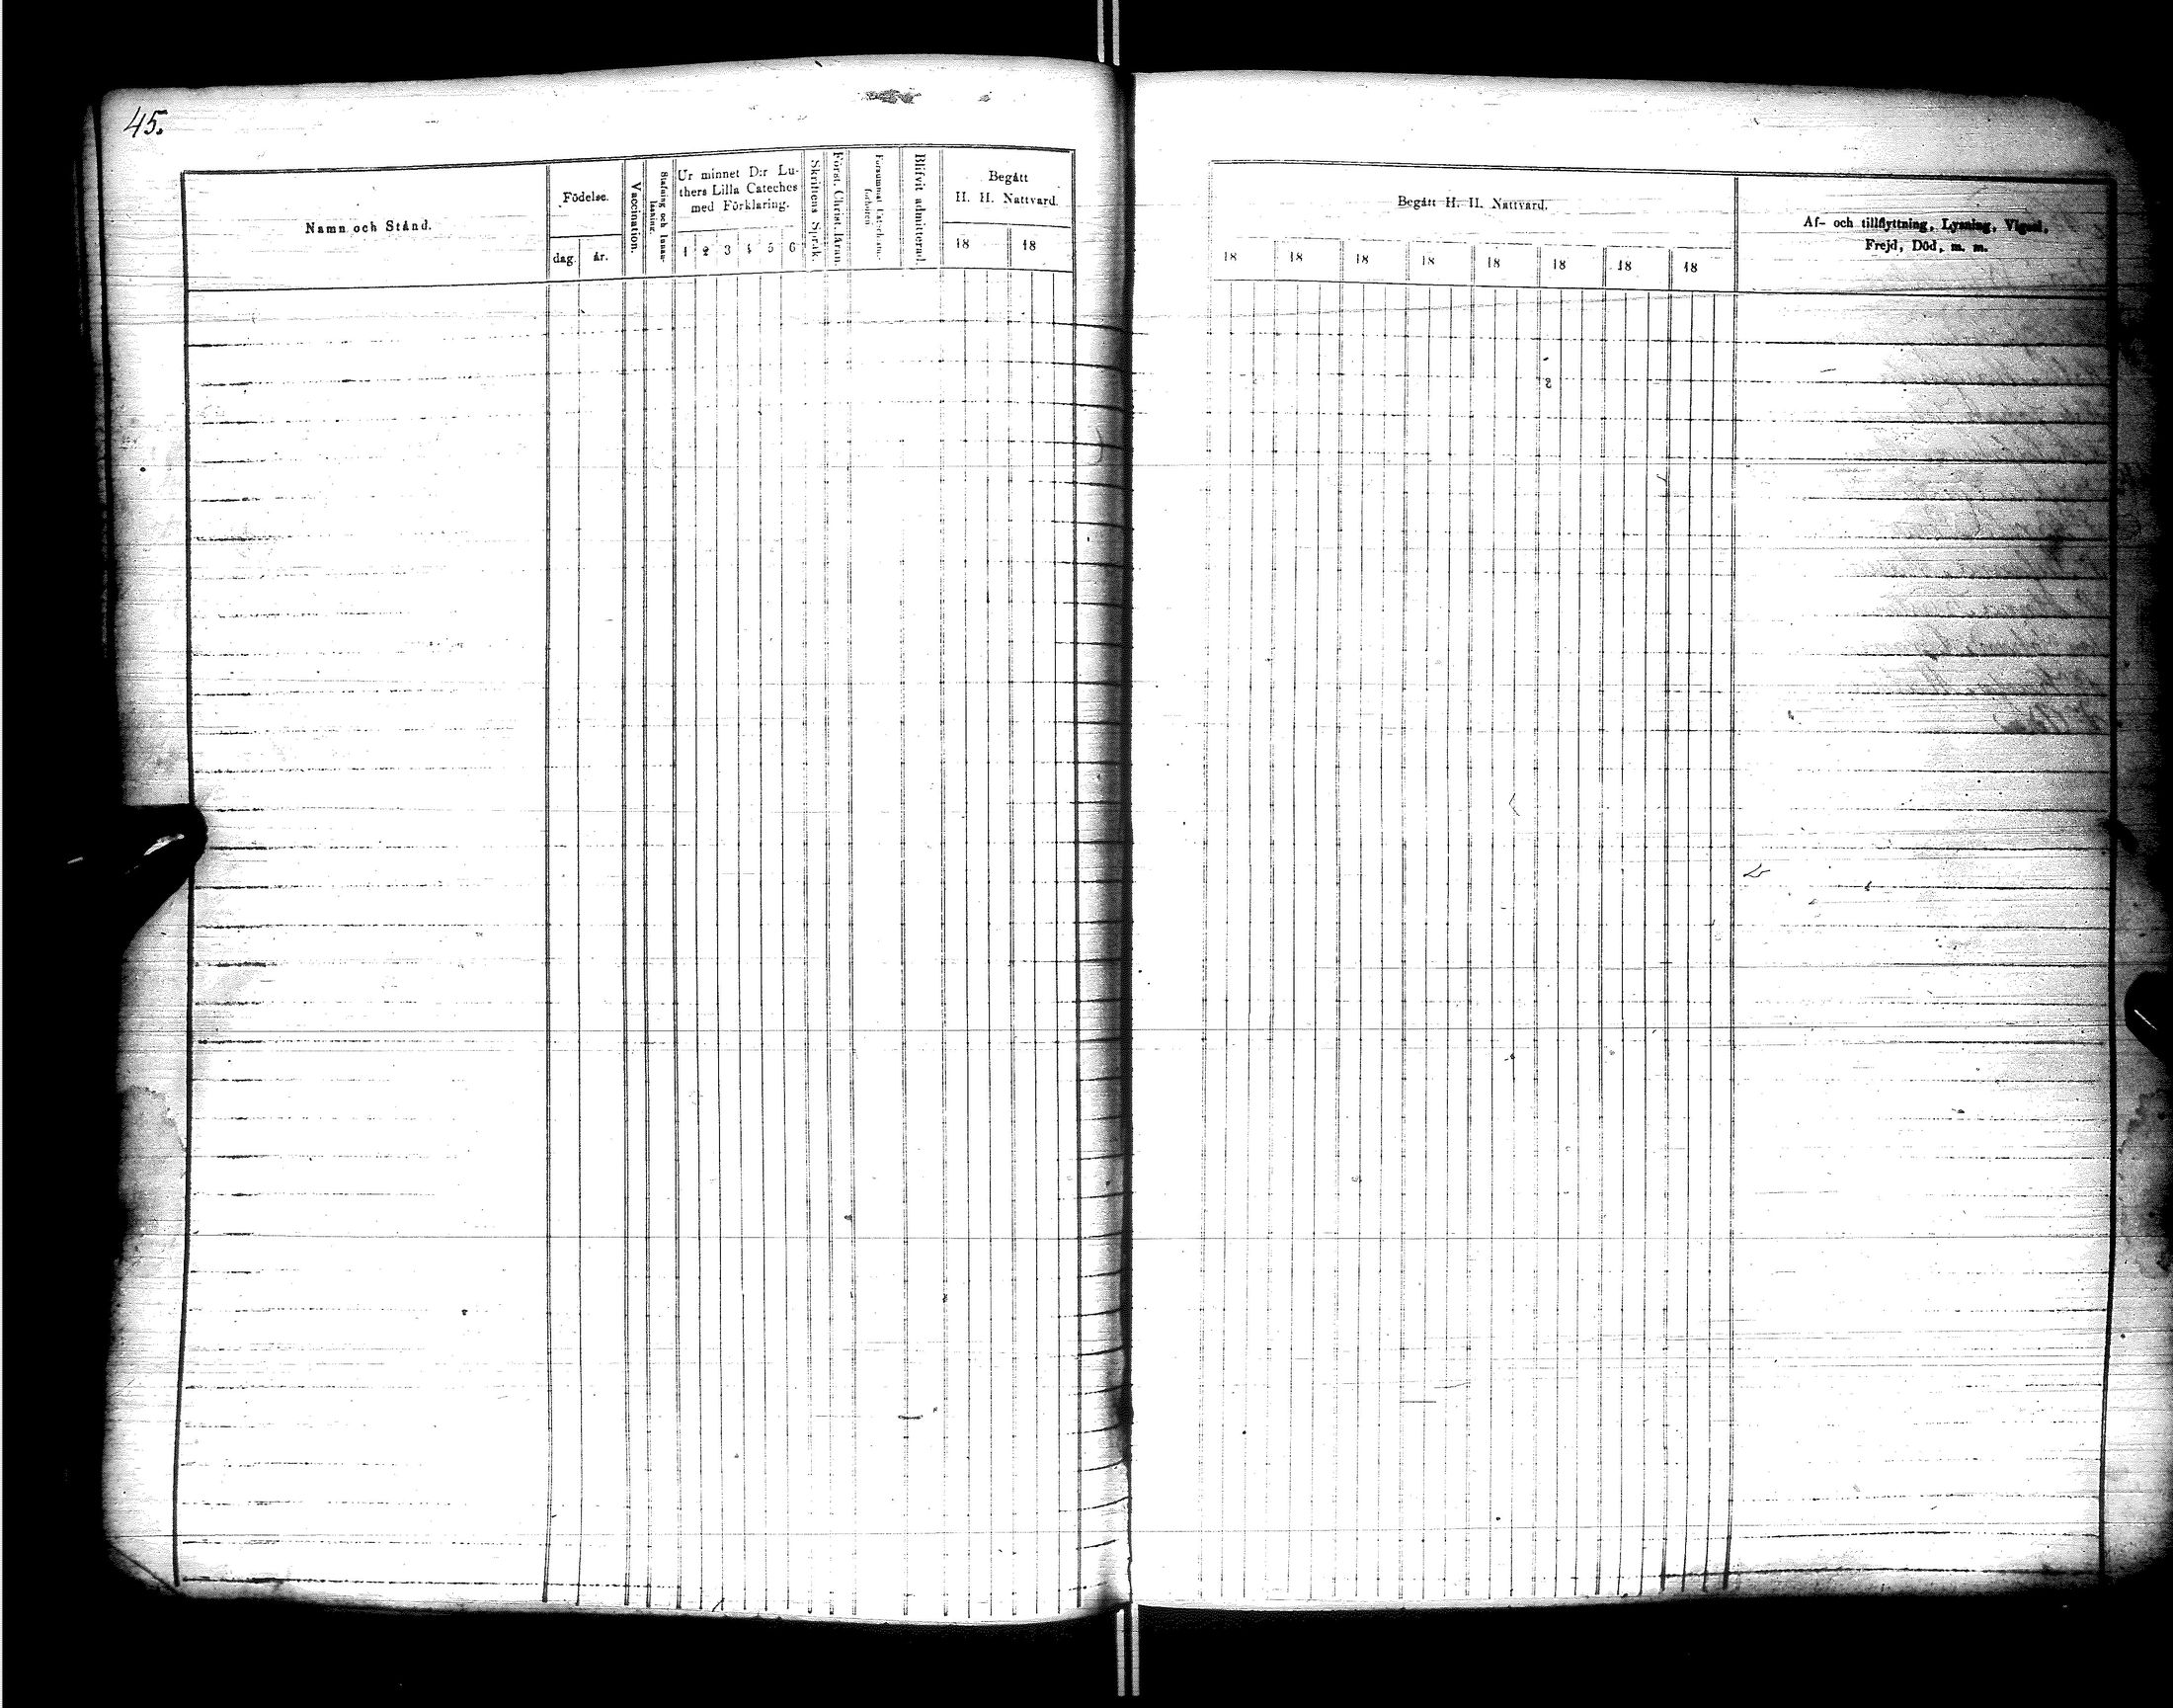 45.
Namn och Stånd.
Födelse.
dag.
år.
Vaccination.
Stafning och Innan-
läsning.
Ur minnet D:r Lu-
thers Lilla Cateches
med Förklaring.
1 2 3 4 5 6
Skriftens Språk.
Förat. Christ. läran.
Försummat Catechism-
förhören.
Blifvit admitterad.
Begått
H. H. Nattvard.
18 18
Begått H. H. Nattvard.
18 18 18 18 18 18 18 18
Af- och tillflyttning, Lysning, Vigsel,
Frejd, Död, m. m.